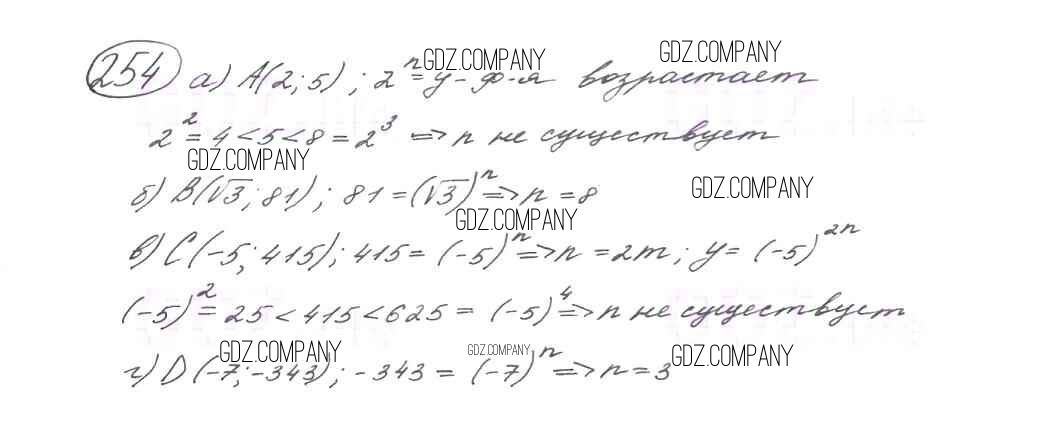 254 а) A(2; 5) ; 2ⁿ = y - ф-я возрастает
2² = 4 < 5 < 8 = 2³ => n не существует
б) B(√3; 81) ; 81 = (√3)ⁿ => n = 8
в) C(-5; 415) ; 415 = (-5)ⁿ => n = 2m ; y = (-5)²ⁿ
(-5)² = 25 < 415 < 625 = (-5)⁴ => n не существует
г) D(-7; -343) ; -343 = (-7)ⁿ => n = 3
GDZ.COMPANY
GDZ.COMPANY
GDZ.COMPANY
GDZ.COMPANY
GDZ.COMPANY
GDZ.COMPANY
GDZ.COMPANY
GDZ.COMPANY